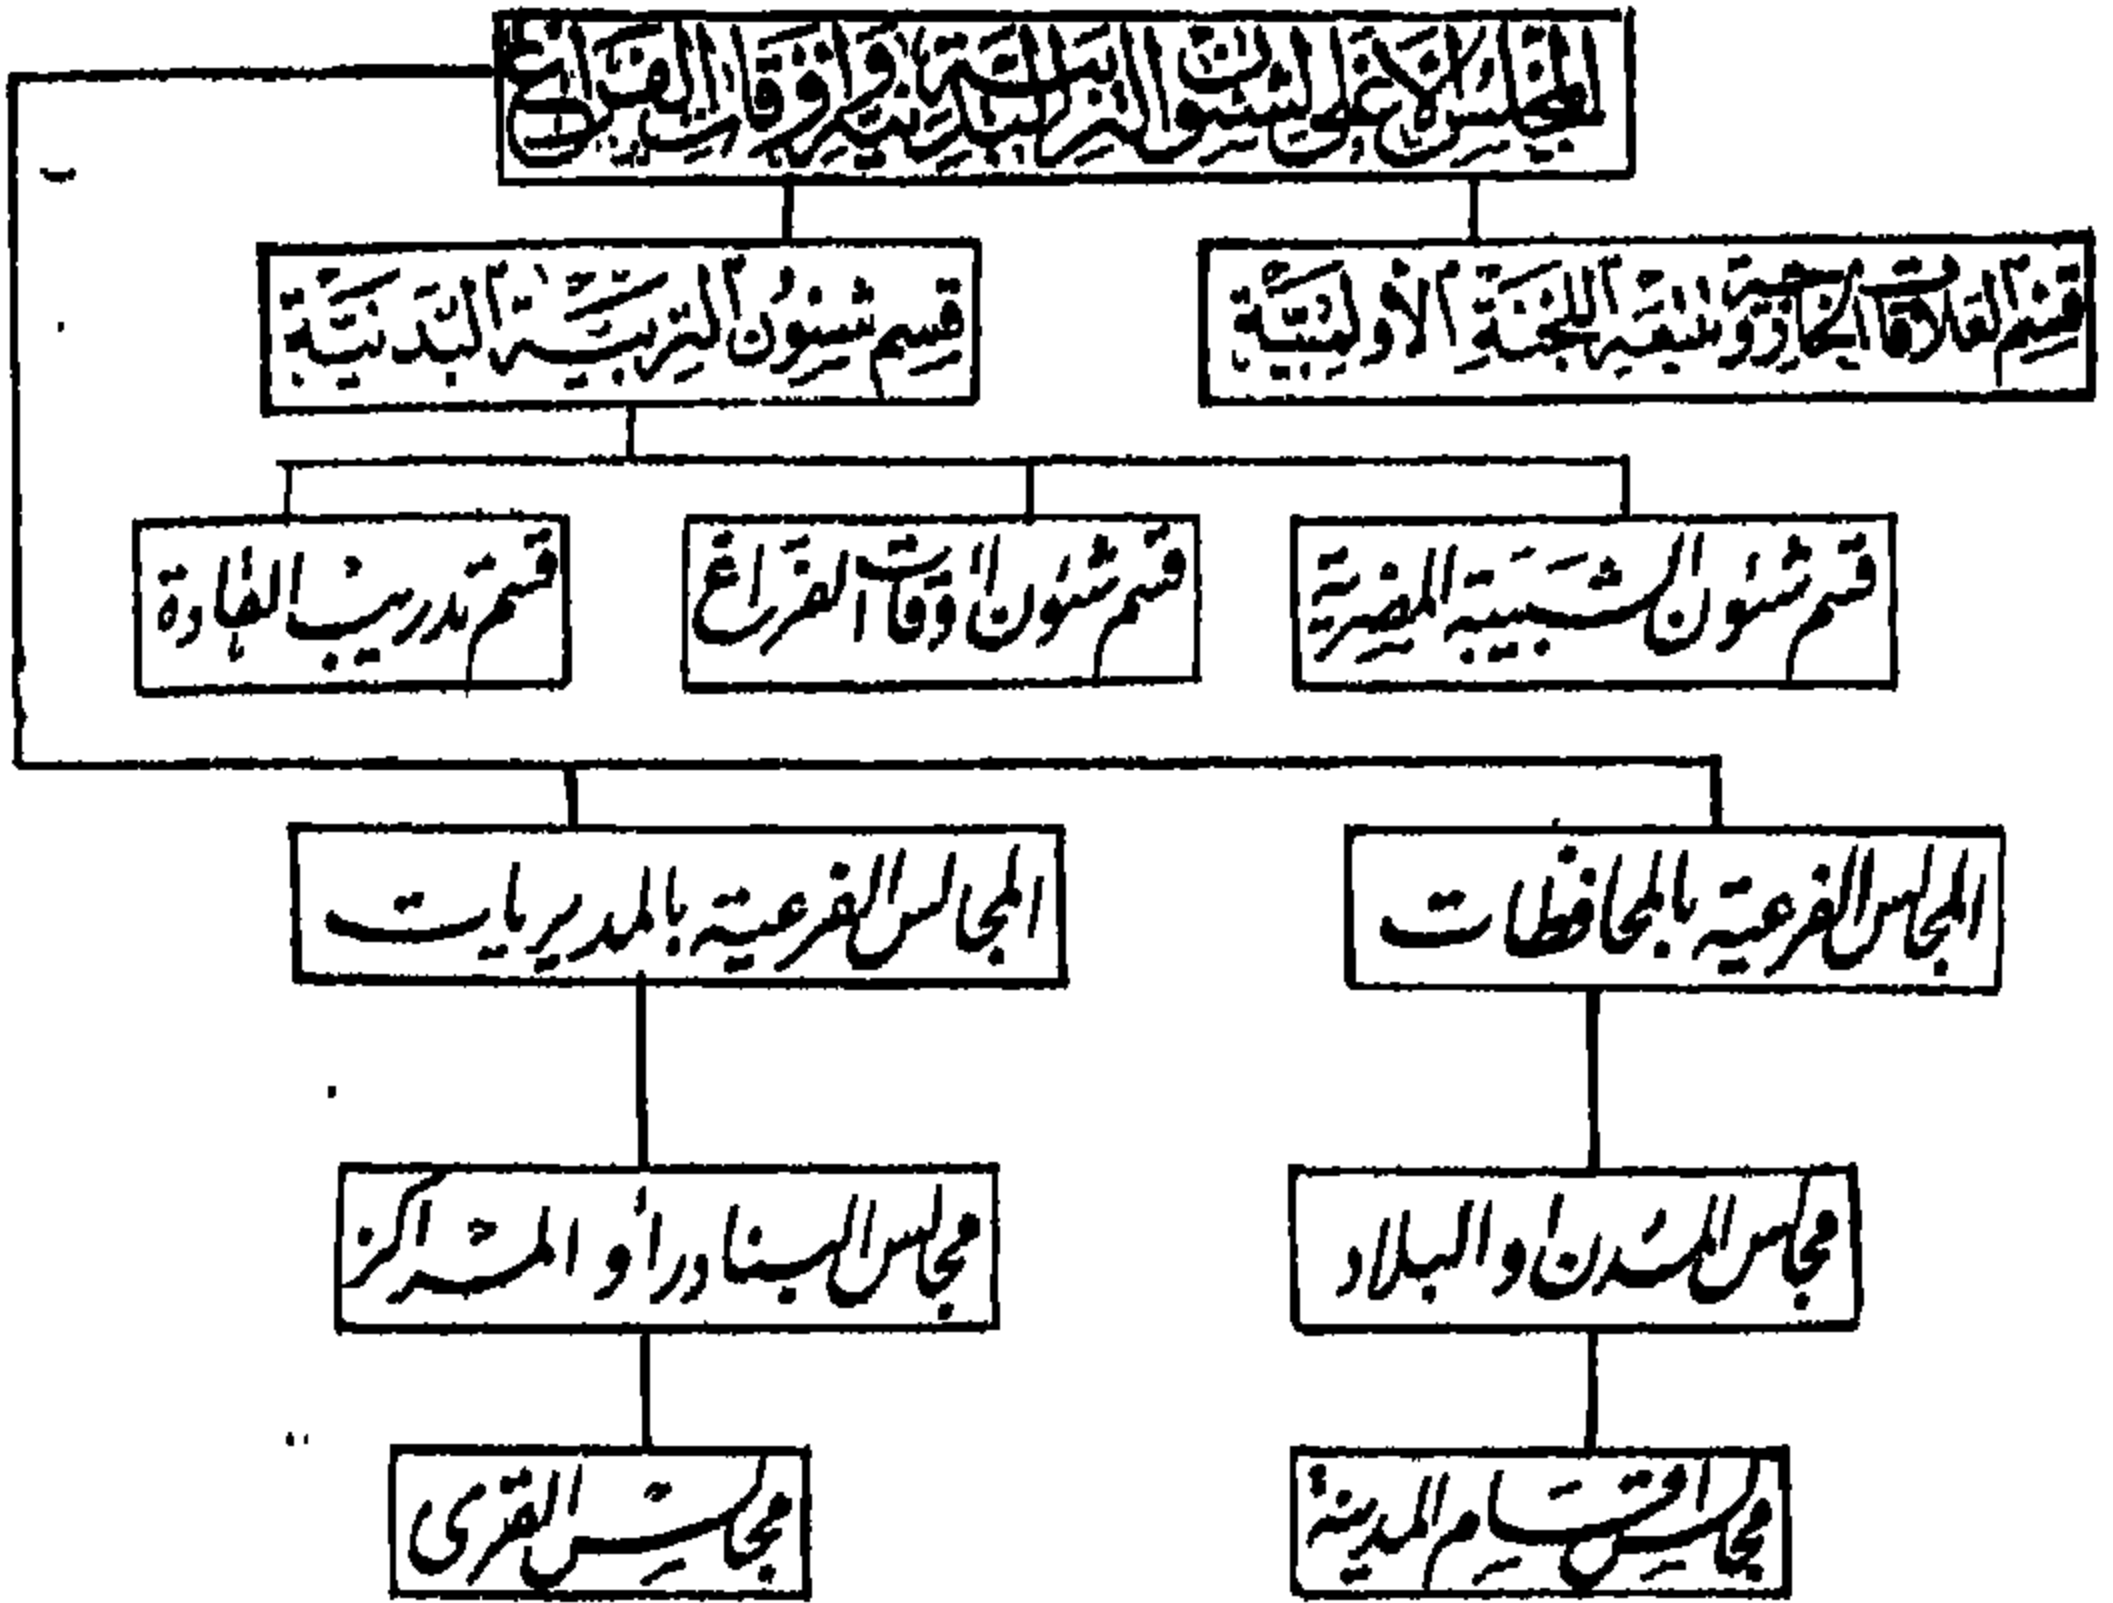 المجلس الأعلى لشئون التربية البدنية وأوقات الفراغ
قسم العلاقات الخارجية وشعبة اللجنة الأولمبية
قسم شئون التربية البدنية
قسم شئون الشبيبة المصرية
قسم شئون أوقات الفراغ
قسم تدريب القادة
المجالس الفرعية بالمحافظات
المجالس الفرعية بالمديريات
مجالس المدن والبلاد
مجالس البنادر أو المراكز
مجالس أقسام المدينة
مجالس القرى